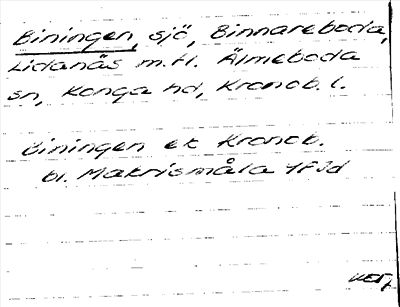 Biningen, sjö, Binnareboda,
Lidanäs m.fl. Älmeboda
sn, Konga hd, Kronob. l.
Biningen ek Kronob.
bl. Matrismåla